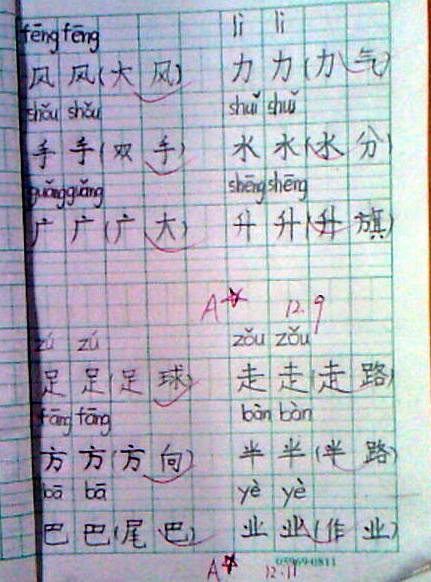 fēng fēng lì lì
风 风(大 风) 力 力(力 气)
shǒu shǒu shuǐ shuǐ
手 手(双 手) 水 水(水 分)
guǎng guǎng shēng shēng
广 广(广 大) 升 升(升 旗)
A☆ 12.9
zú zú zǒu zǒu
足 足(足 球) 走 走(走 路)
fāng fāng bàn bàn
方 方(方 向) 半 半(半 路)
bā bā yè yè
巴 巴(尾 巴) 业 业(作 业)
A☆ 12.11